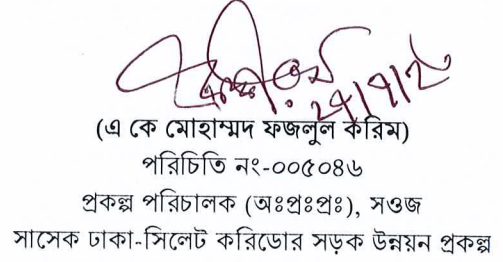 (এ কে মোহাম্মদ ফজলুল করিম)
পরিচিতি নং-০০৫০৪৬
প্রকল্প পরিচালক (অঃপ্রঃপ্রঃ), সওজ
সাসেক ঢাকা-সিলেট করিডোর সড়ক উন্নয়ন প্রকল্প